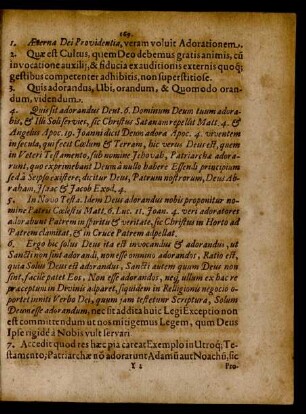 169.
1. Æterna Dei Providentia, veram voluit Adorationem.
2. Quæ est Cultus, quem Deo debemus gratis animis, cū
invocatione auxilij, & fiducia exauditionis externis quoq;
gestibus competenter adhibitis, non superstitiose.
3. Quis adorandus, Ubi, orandum, & Quomodo oran-
dum, videndum.
4. Quis sit adorandus Deut. 6. Dominum Deum tuum adora-
bis, & Illi Soli servies, sic Christus Satanam repellit Matt. 4. &
Angelus Apoc. 19. Joanni dicit Deum adora Apoc. 4. viventem
in secula, qui fecit Cælum & Terram, hic verus Deus est, quem
in Veteri Testamento, sub nomine Jehovah, Patriarchæ adora-
runt, quo exprimebant Deum à nullo habere Essendi principium
sed à Seipso existere; dicitur Deus, Patrum nostrorum, Deus Ab-
raham, Isaac & Jacob Exod. 4.
5. In Novo Testa. Idem Deus adorandus nobis proponitur no-
mine Patris Cælestis Matt. 6. Luc. 11. Joan. 4. veri adoratores
adorabunt Patrem in spiritu & veritate, sic Christus in Horto ad
Patrem clamitat, & in Cruce Patrem adpellat.
6. Ergo hic solus Deus ita est invocandus & adorandus, ut
Sancti non sint adorandi, non esse omnino adorandos, Ratio est,
quia Solus Deus est adorandus, Sancti autem quum Deus non
sint, facile patet Eos, Non esse adorandos, neq; ullum ex hac re
præceptum in Divinis adparet, siquidem in Religionis negocio o-
portet inniti Verbo Dei, quum jam testetur Scriptura, Solum
Deum esse adorandum, nec sit addita huic Legi Exceptio non
est committendum ut nos mitigemus Legem, quam Deus
Ipse rigidè à Nobis vult servari.
7. Accedit quod res hæc pia careat Exemplo in Utroq; Te-
stamento; Patriarchæ nō adorarunt Adamū aut Noachū, sic
Y 2
Pro-